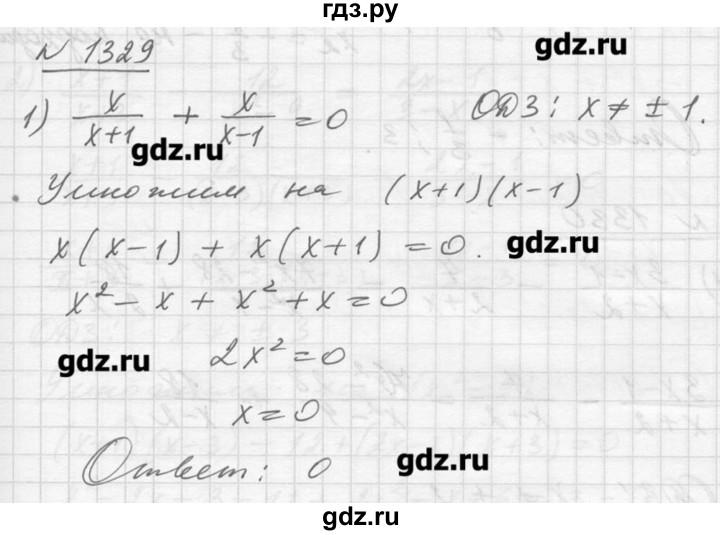 гдз.ру
№ 1329
gdz.ru
1) x/(x+1) + x/(x-1) = 0 ОДЗ: x ≠ ± 1.
gdz.ru
Умножим на (x+1)(x-1)
x(x-1) + x(x+1) = 0.
gdz.ru
x² - x + x² + x = 0
gdz.ru
2x² = 0
x = 0
Ответ: 0
gdz.ru
gdz.ru